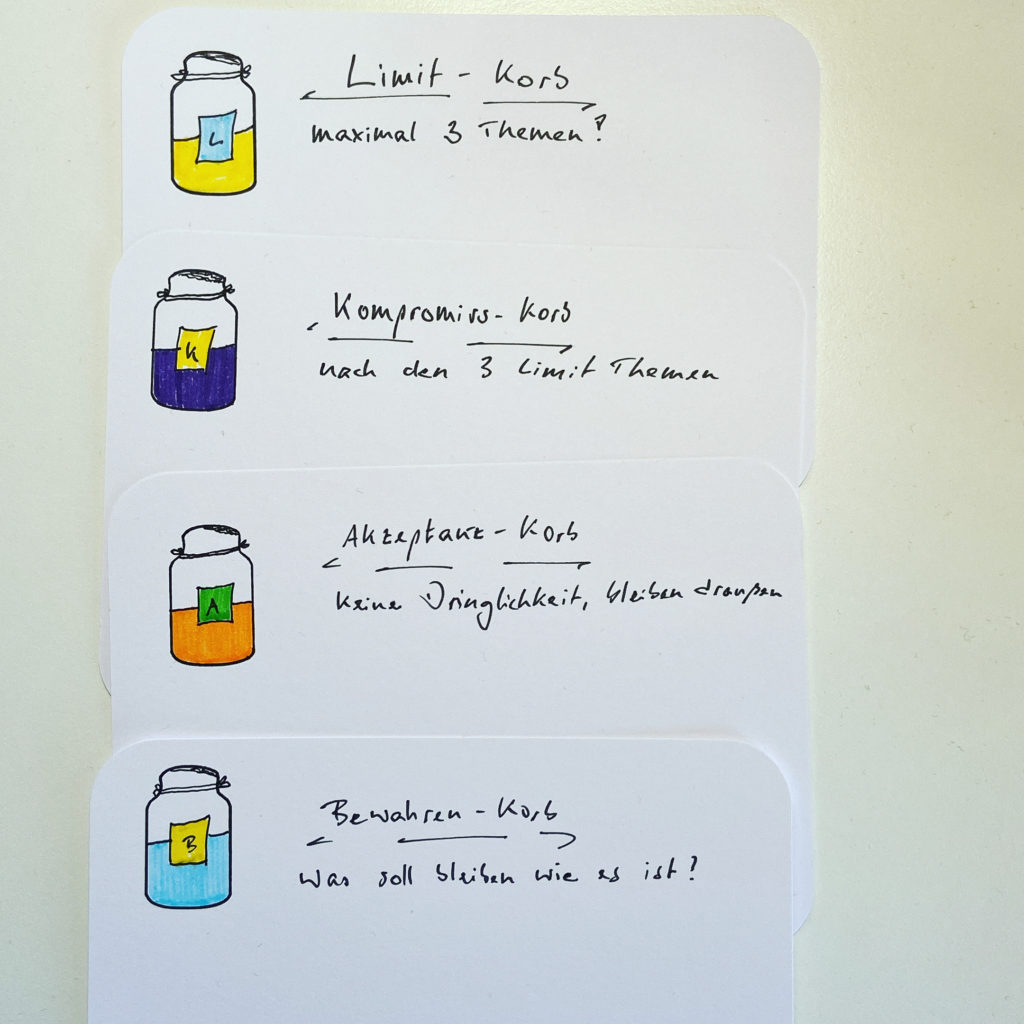 L
Limit - Korb
maximal 3 Themen?
K
Kompromiss - Korb
nach den 3 Limit Themen
A
Akzeptanz - Korb
keine Dringlichkeit, bleiben draußen
B
Bewahren - Korb
was soll bleiben wie es ist?